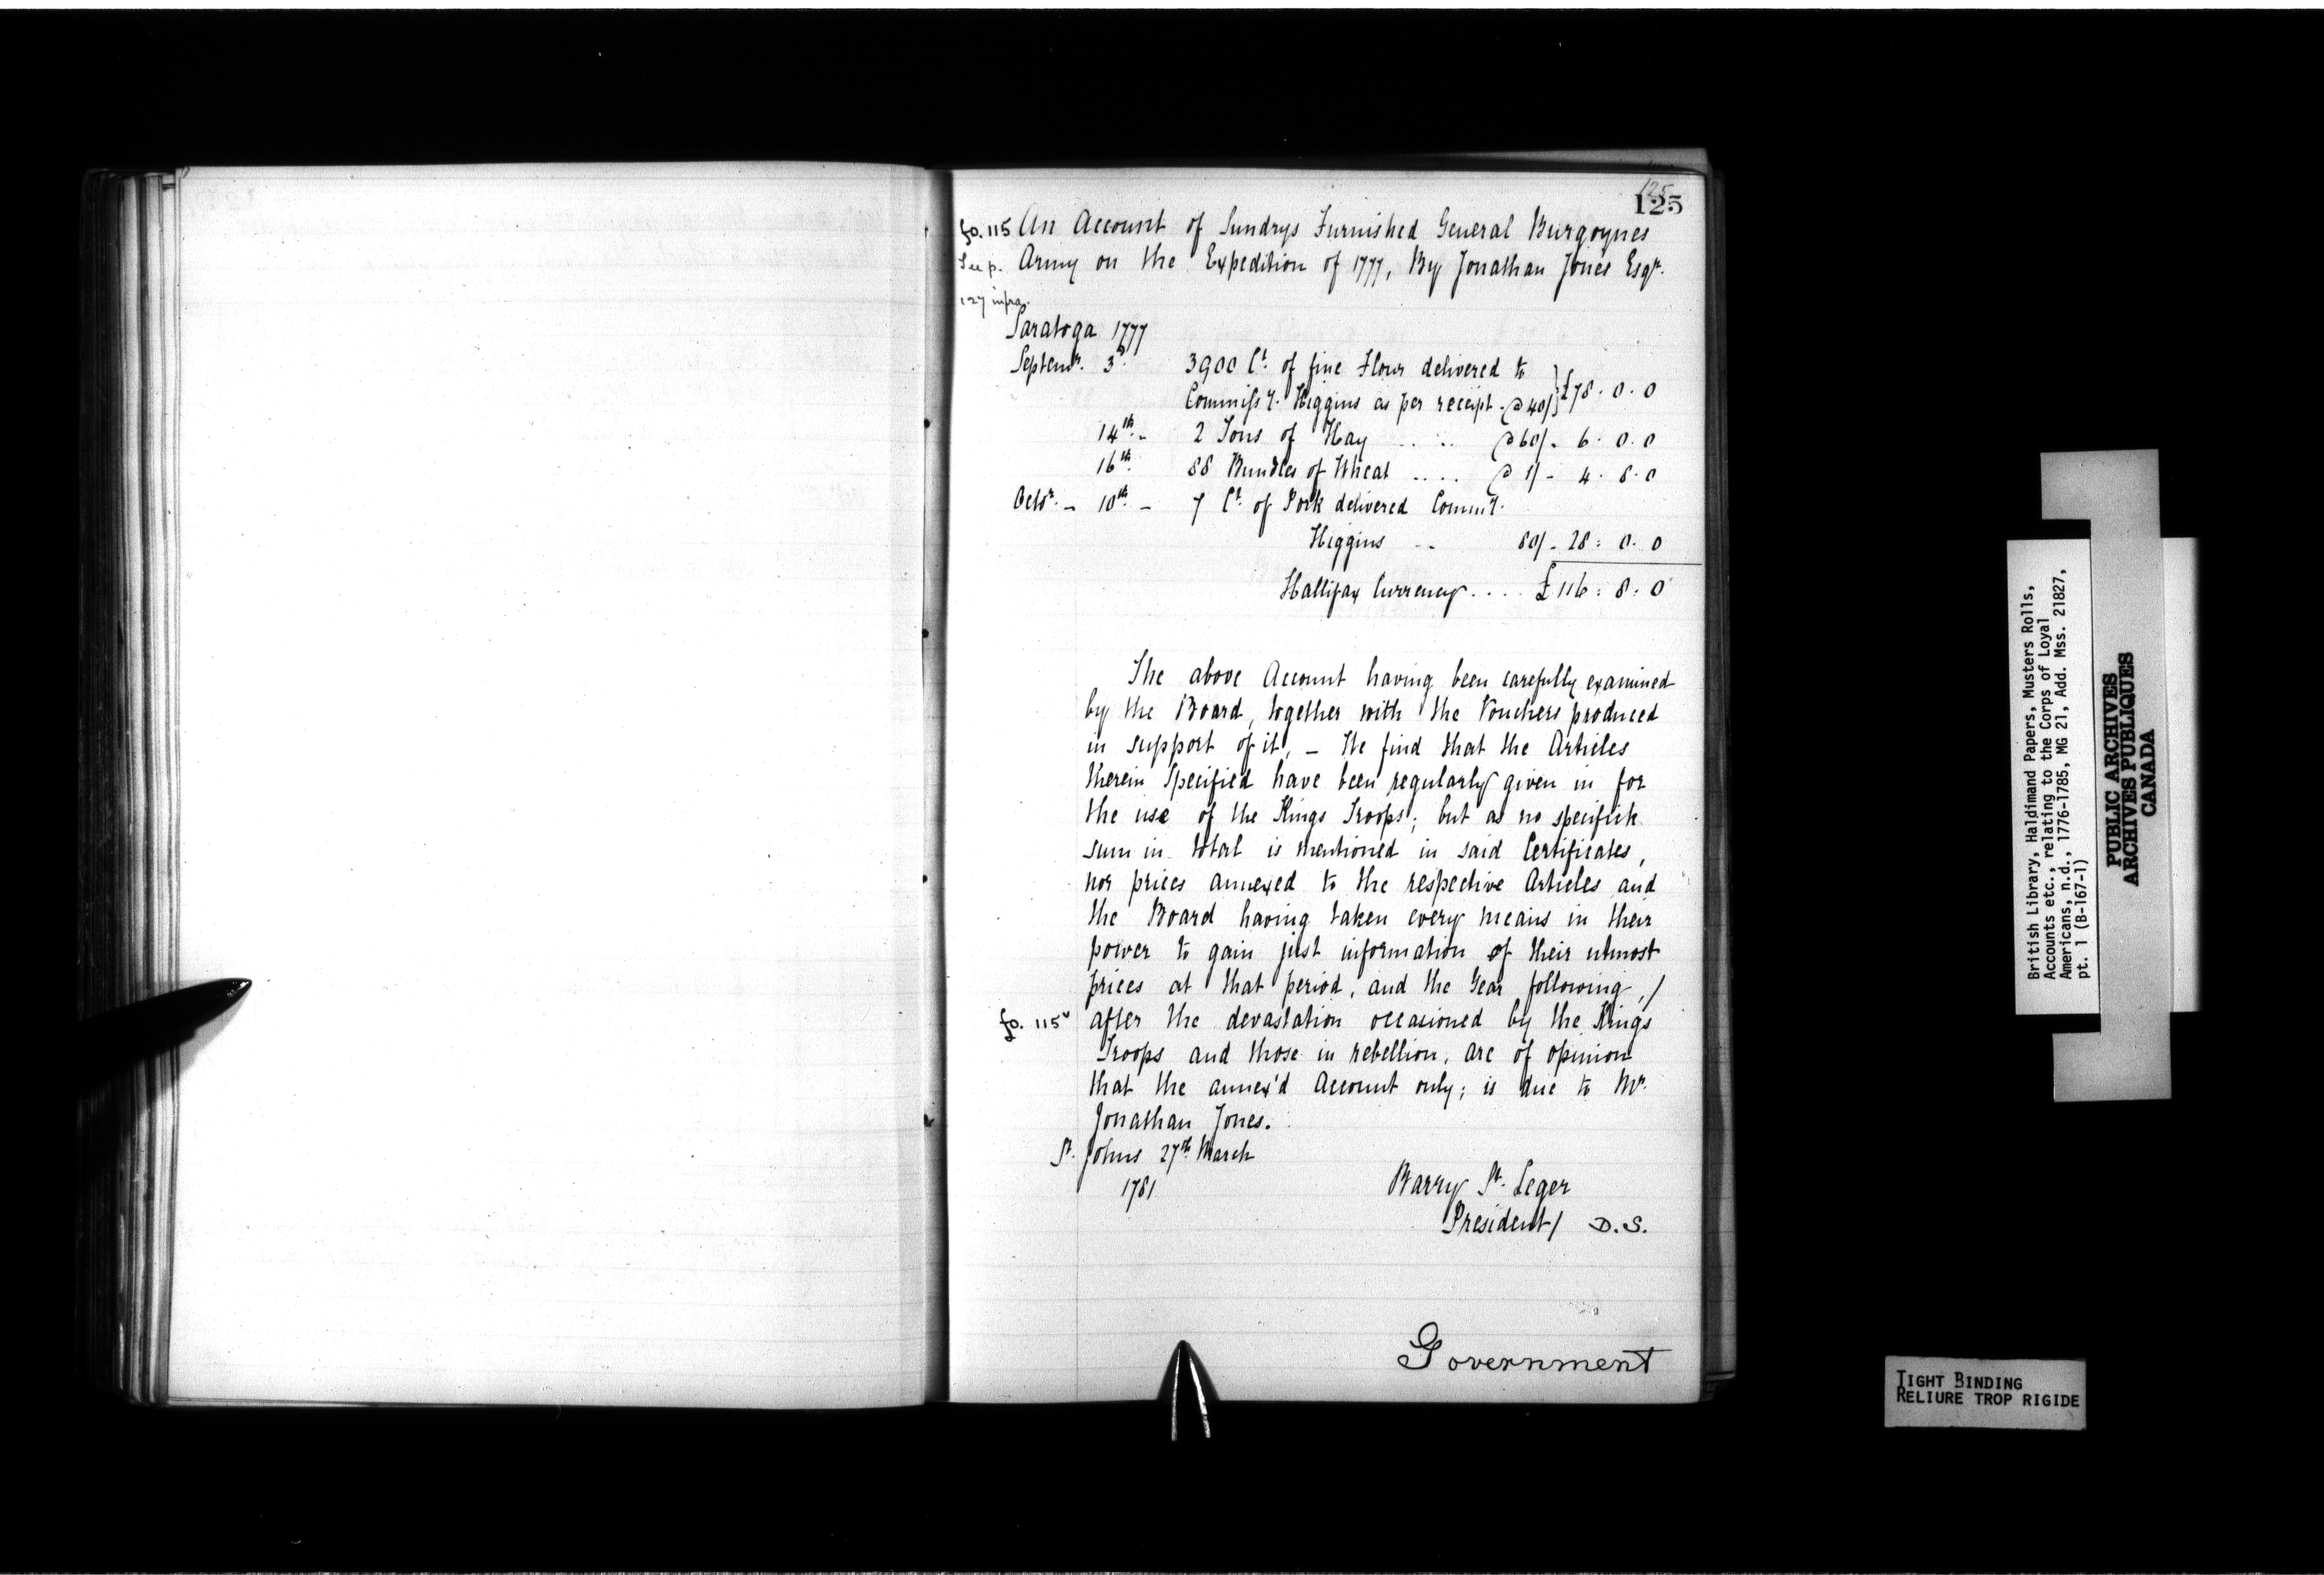 125
125
fo. 115 An Account of Sundrys Furnished General Burgoynes
See p. Army on the Expedition of 1777, By Jonathan Jones Esqr.
127 infra.
Saratoga 1777
Septemr. 3d. 3900 Ct. of fine Flour delivered to
Commissy. Higgins as per receipt - @ 40/ } £78 . 0 . 0
14th. - 2 Tons of Hay .... @ 60/ - 6 . 0 . 0
16th. 88 Bundles of Wheat .... @ 1/ - 4 . 8 . 0
Octor. - 10th. - 7 Ct. of Pork delivered Commy.
Higgins -- 80/ - 28 : 0 . 0
Hallifax Currency .... £116 : 8 : 0
The above Account having been carefully examined
by the Board, together with the Vouchers produced
in support of it, - We find that the Articles
therein Specified have been regularly given in for
the use of the Kings Troops; but as no specifick
sum in total is mentioned in said Certificates,
nor prices annexed to the respective Articles and
the Board having taken every means in their
power to gain just information of their utmost
prices at that period, and the Year following, /
fo. 115v after the devastation occasioned by the Kings
Troops and those in rebellion, are of opinion
that the annex'd Account only; is due to Mr.
Jonathan Jones.
St. Johns 27th March
1781
Barry St. Leger
President / D.S.
Government
British Library, Haldimand Papers, Musters Rolls,
Accounts etc., relating to the Corps of Loyal
Americans, n.d., 1776-1785, MG 21, Add. Mss. 21827,
pt. 1 (B-167-1)
PUBLIC ARCHIVES
ARCHIVES PUBLIQUES
CANADA
TIGHT BINDING
RELIURE TROP RIGIDE